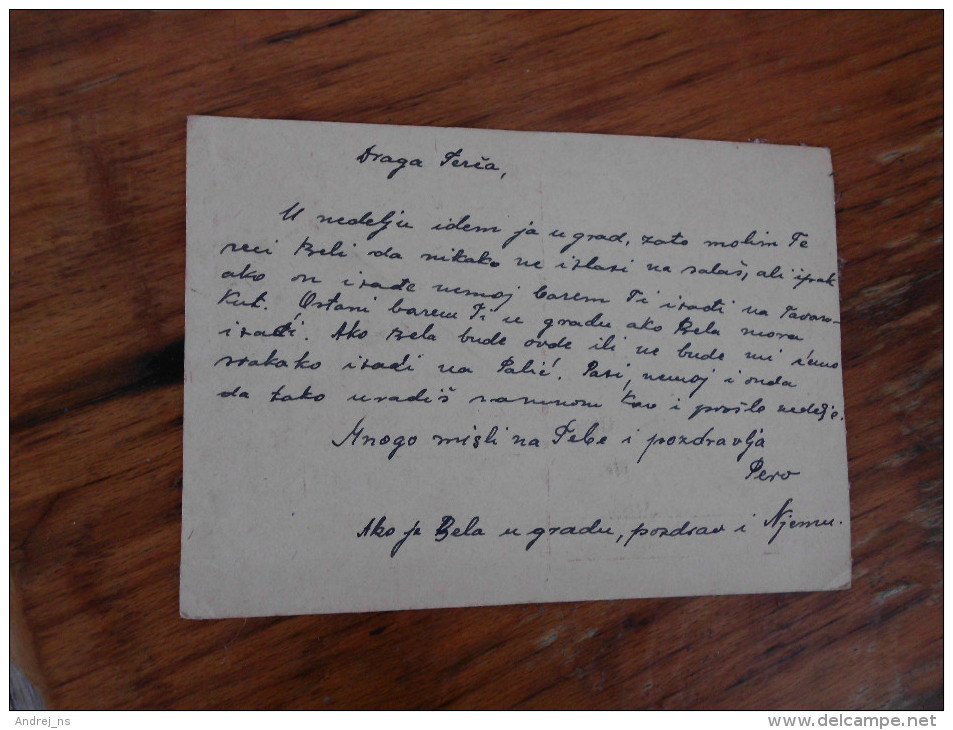 Draga Perča,
U nedelju idem ja u grad, zato molim Te
reci Beli da nikako ne izlazi na salaš, ali ipak
ako on izađe nemoj barem Ti izaći na Tavan-
Kut. Ostani barem Ti u gradu ako Bela mora
izaći. Ako Bela bude ovde ili ne bude mi ćemo
svakako izaći na Palić. Pazi, nemoj i onda
da tako uradiš samnom kao i prošle nedelje.
Mnogo misli na Tebe i pozdravlja
Pero
Ako je Bela u gradu, pozdrav i Njemu.
Andrej_ns
www.delcampe.net